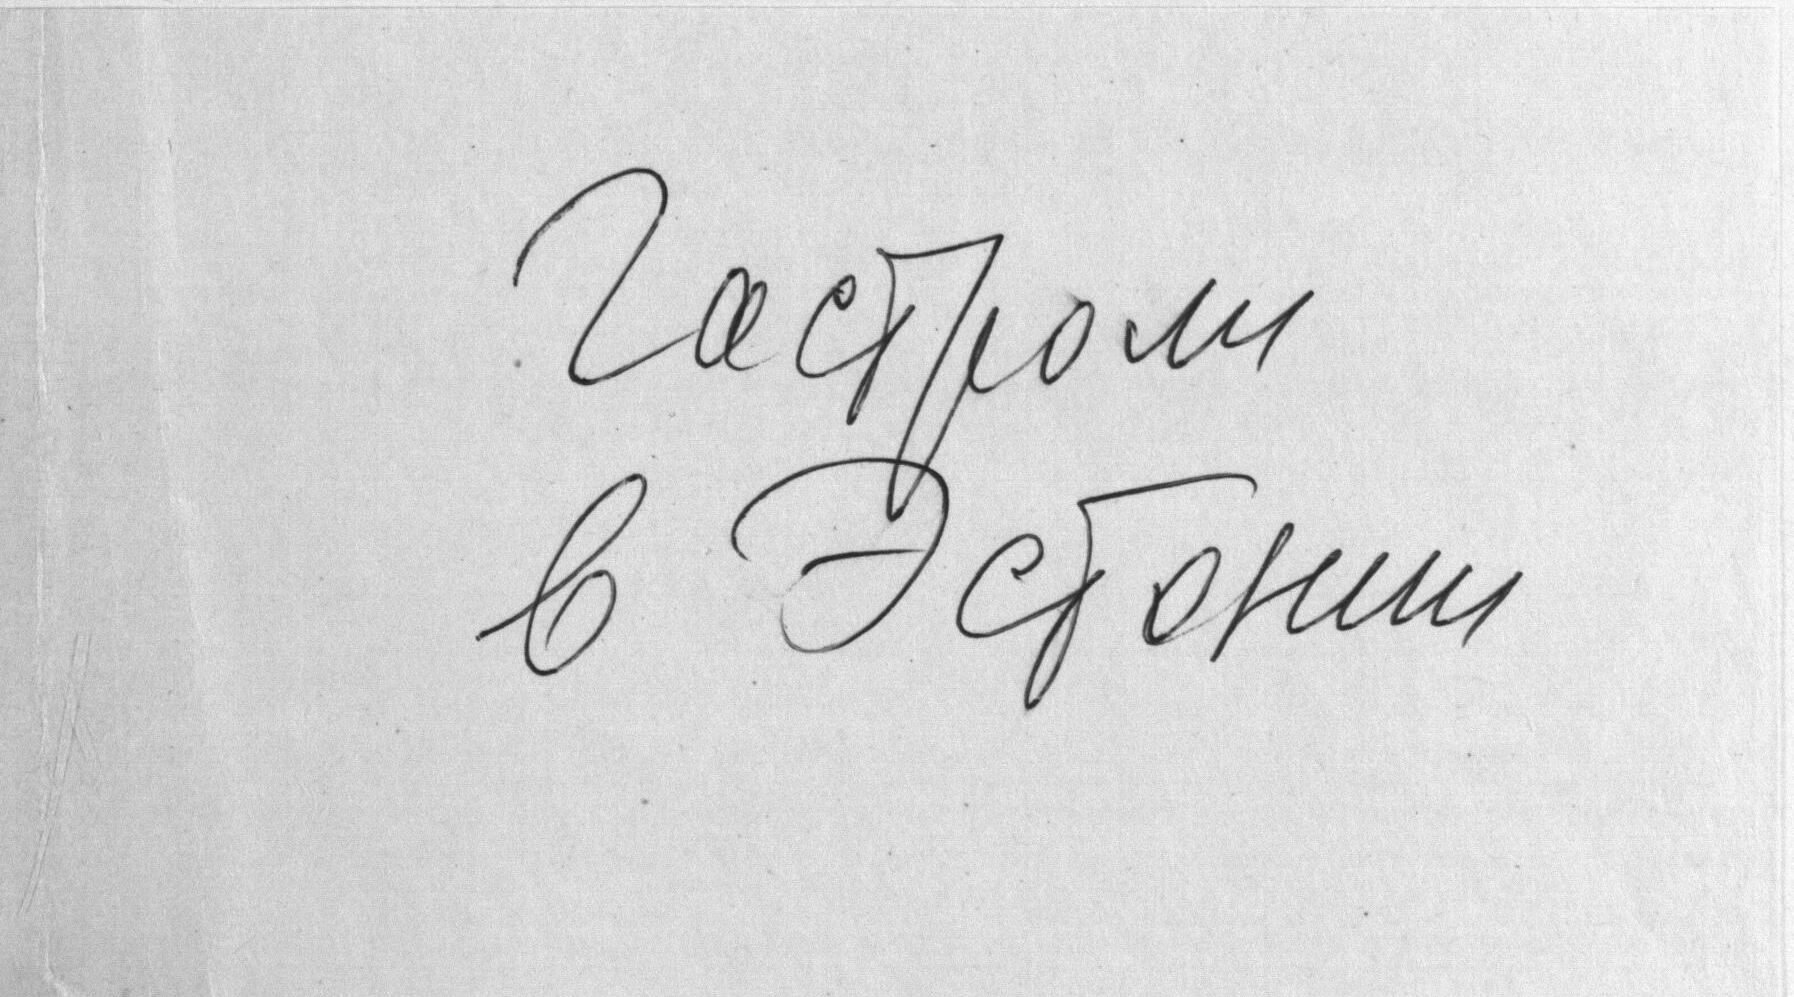 Гастроли
в Эстонии